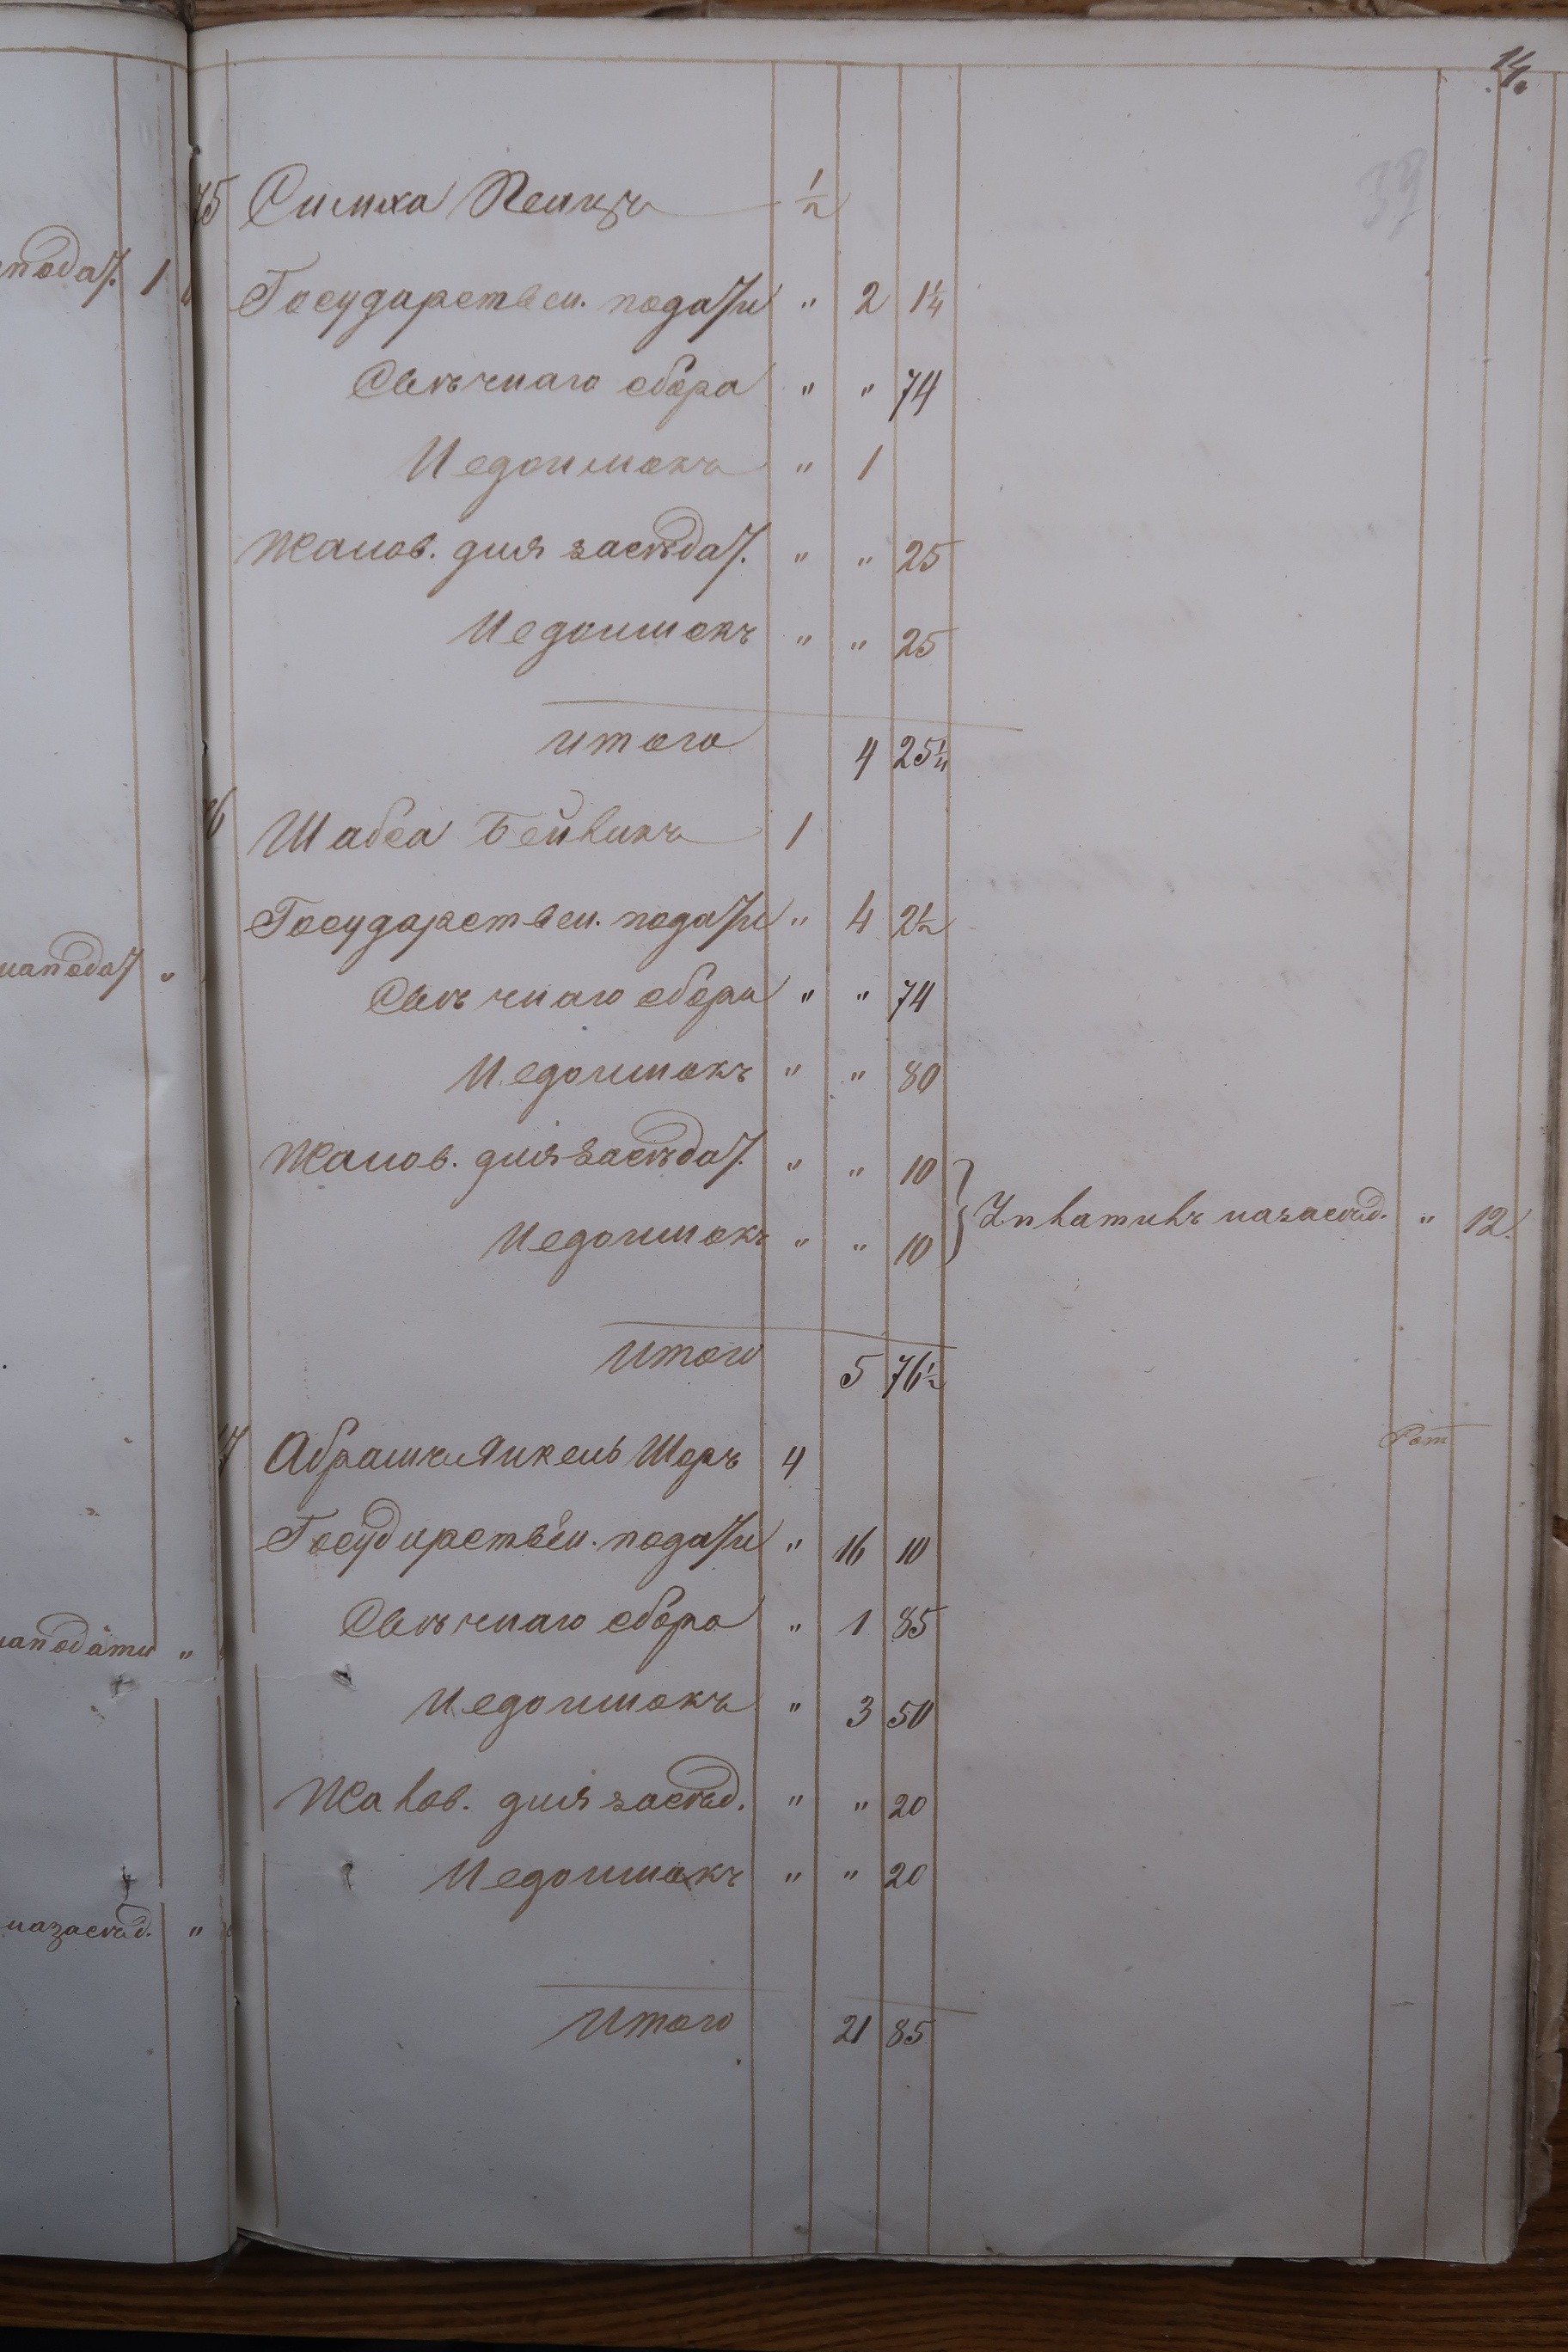 14.
39
75 Симха Пенкъ ½
Государствен. подати " 2 1¼
Свѣчнаго сбора " " 74
Недоимокъ " 1
Жалов. для засѣдат. " " 25
Недоимокъ " " 25
итого 4 25¼
76 Шабса Бейликъ 1
Государствен. подати " 4 2½
Свѣчнаго сбора " " 74
Недоимокъ " " 80
Жалов. для засѣдат. " " 10
Недоимокъ " " 10 } Уплатилъ на засѣд. " 12.
итого 5 76½
77 Абрамъ Янкель Шоръ 4
Государствен. подати " 16 10
Свѣчнаго сбора " 1 85
Недоимокъ " 3 50
Жалов. для засѣд. " " 20
Недоимокъ " " 20
итого 21 85